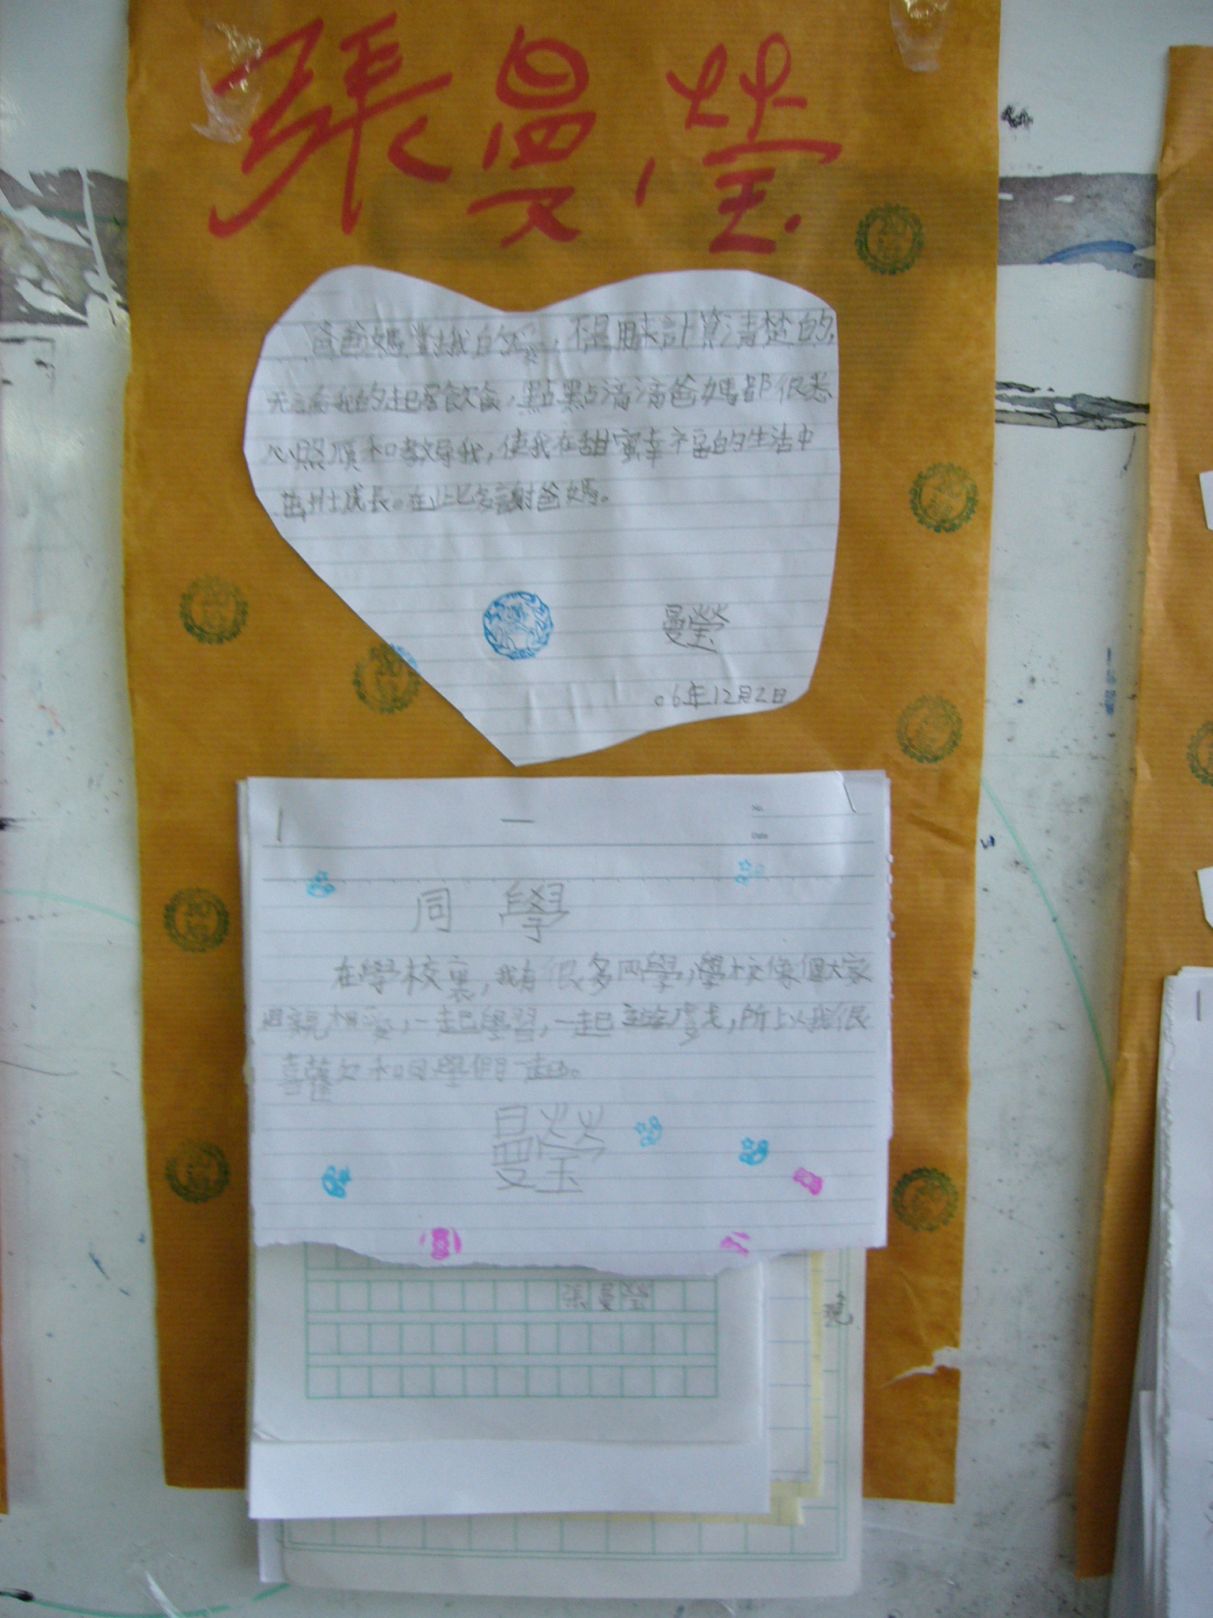 張曼瑩
爸爸媽對我的愛,不是用來計算清楚的,
無論我的起居飲食,點點滴滴爸媽都很悉
心照顧和教導我,使我在甜蜜幸福的生活中
茁壯成長。在此多謝爸媽。
曼瑩
06年12月2日
No.
Date
同學
在學校裏,我有很多同學,學校像個大家
相親相愛,一起學習,一起遊戲,所以我很
喜歡和同學們一起。
曼瑩
張曼瑩